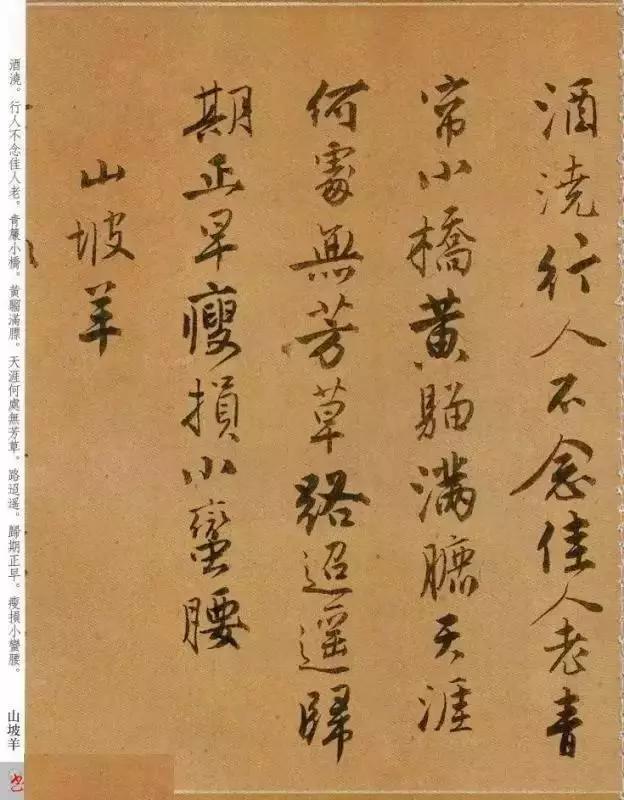 酒澆行人不念佳人老青
帘小橋黃騮滿膘天涯
何處無芳草路迢遥歸
期正早瘦損小蠻腰
山坡羊
酒澆。行人不念佳人老。青簾小橋。黃騮滿膘。天涯何處無芳草。路迢遥。歸期正早。瘦損小蠻腰。
山坡羊